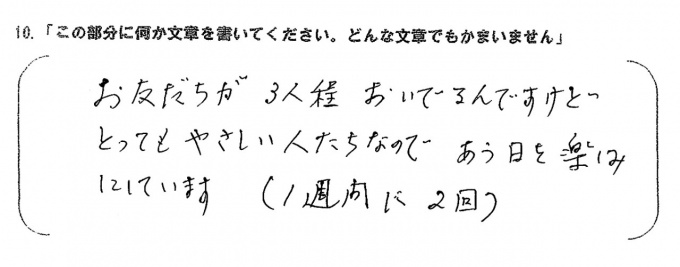 10.「この部分に何か文章を書いてください。どんな文章でもかまいません」
お友だちが 3人程 おいでるんですけど
とってもやさしい人たちなので あう日を楽しみ
にしています (1週間に 2回)